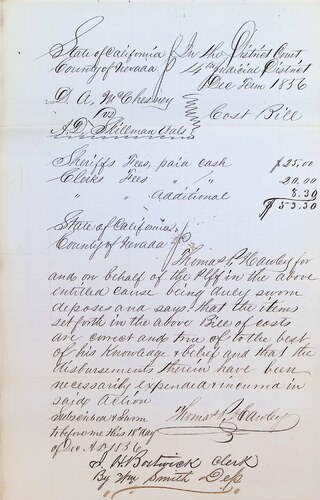 State of California } In the District Court
County of Nevada } 14th Judicial District
Dec Term 1856
D. A. McChesney
vs
A. D. Stillman et als
Cost Bill
Sheriffs Fees, paid cash $25.00
Clerks Fees " " 20.00
" " Additional 8.50
$53.50
State of California
County of Nevada } ss
Thomas P. Hawley for
and on behalf of the Plff in the above
entitled cause being duly sworn
deposes and says that the items
setforth in the above Bill of costs
are correct and true to the best
of his Knowledge & belief and that the
disbursements therein have been
necessarily expended or incurred in
said Action
Subscribed & Sworn Thomas P. Hawley
to before me this 18th day
of Dec A.D. 1856
J. H. Bostwick Clerk
By Wm Smith Dep